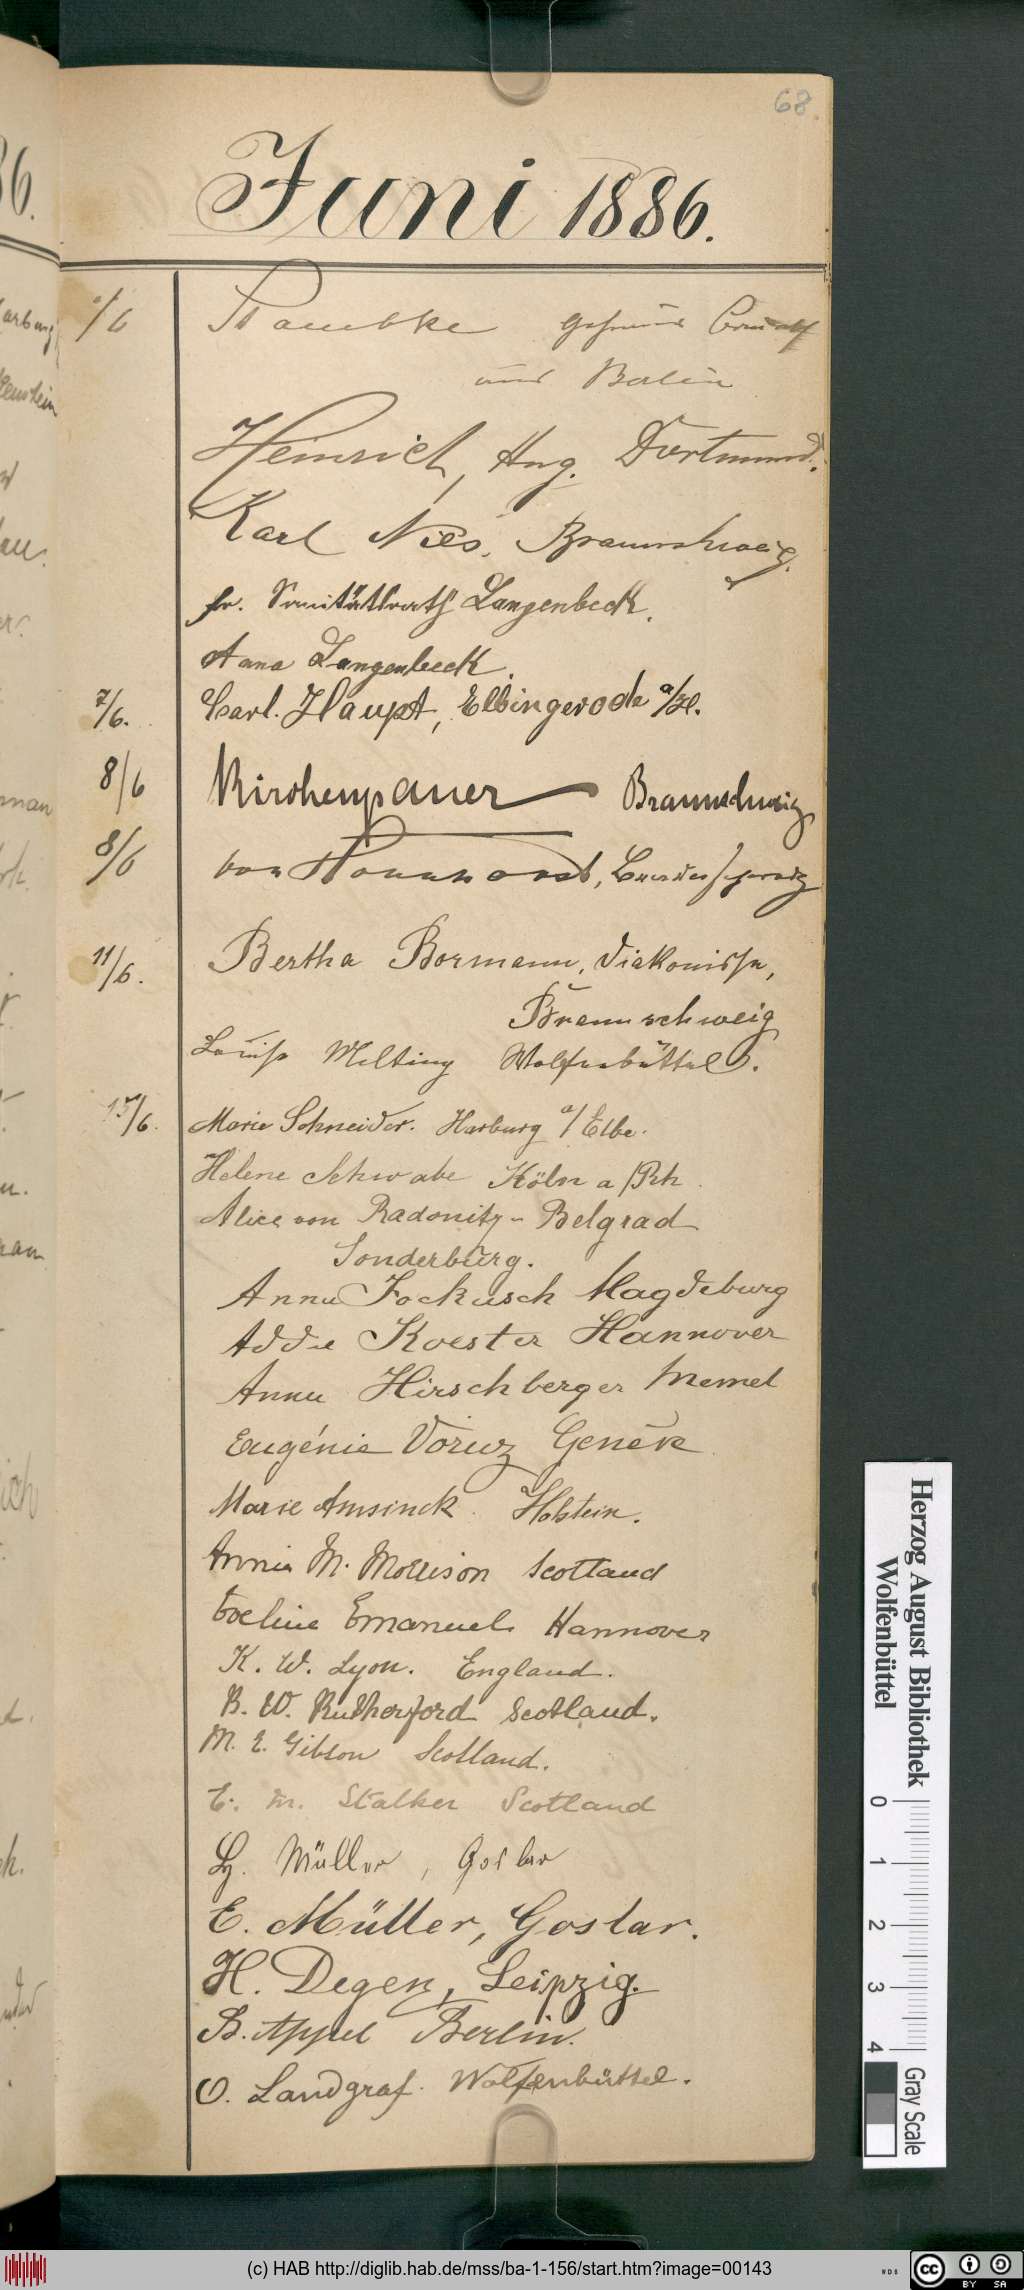 68.
Juni 1886.
/6
und Berlin
Heinrich, Aug. Dortmund.
Karl Nies. Braunschweig.
fr. Sanitätsrath Langenbeck.
Anna Langenbeck.
7/6. Carl. Haupt, Elbingerode a/H.
8/6 Kirchenpauer Braunschweig
8/6 von
11/6. Bertha Bormann, Diakonisse,
Braunschweig
Louise Melting Wolfenbüttel.
15/6. Marie Schneider. Harburg a/Elbe.
Helene Schwabe Köln a/Rh.
Alice von Radonitz - Belgrad
Sonderburg.
Anna Fockusch Magdeburg
Addie Koester Hannover
Anna Hirschberger Memel
Eugénie Voruz Genève
Marie Amsinck. Holstein.
Annie M. Morrison Scotland
Eveline Emanuel. Hannover
K. W. Lyon. England.
B. W. Rutherford Scotland.
M. E. Gibson Scotland.
E. M. Stalker Scotland
Müller, Goslar
E. Müller, Goslar.
H. Degen, Leipzig.
B. Appel Berlin.
O. Landgraf. Wolfenbüttel.
Herzog August Bibliothek
Wolfenbüttel
0 1 2 3 4 Gray Scale
(c) HAB http://diglib.hab.de/mss/ba-1-156/start.htm?image=00143
cc BY SA